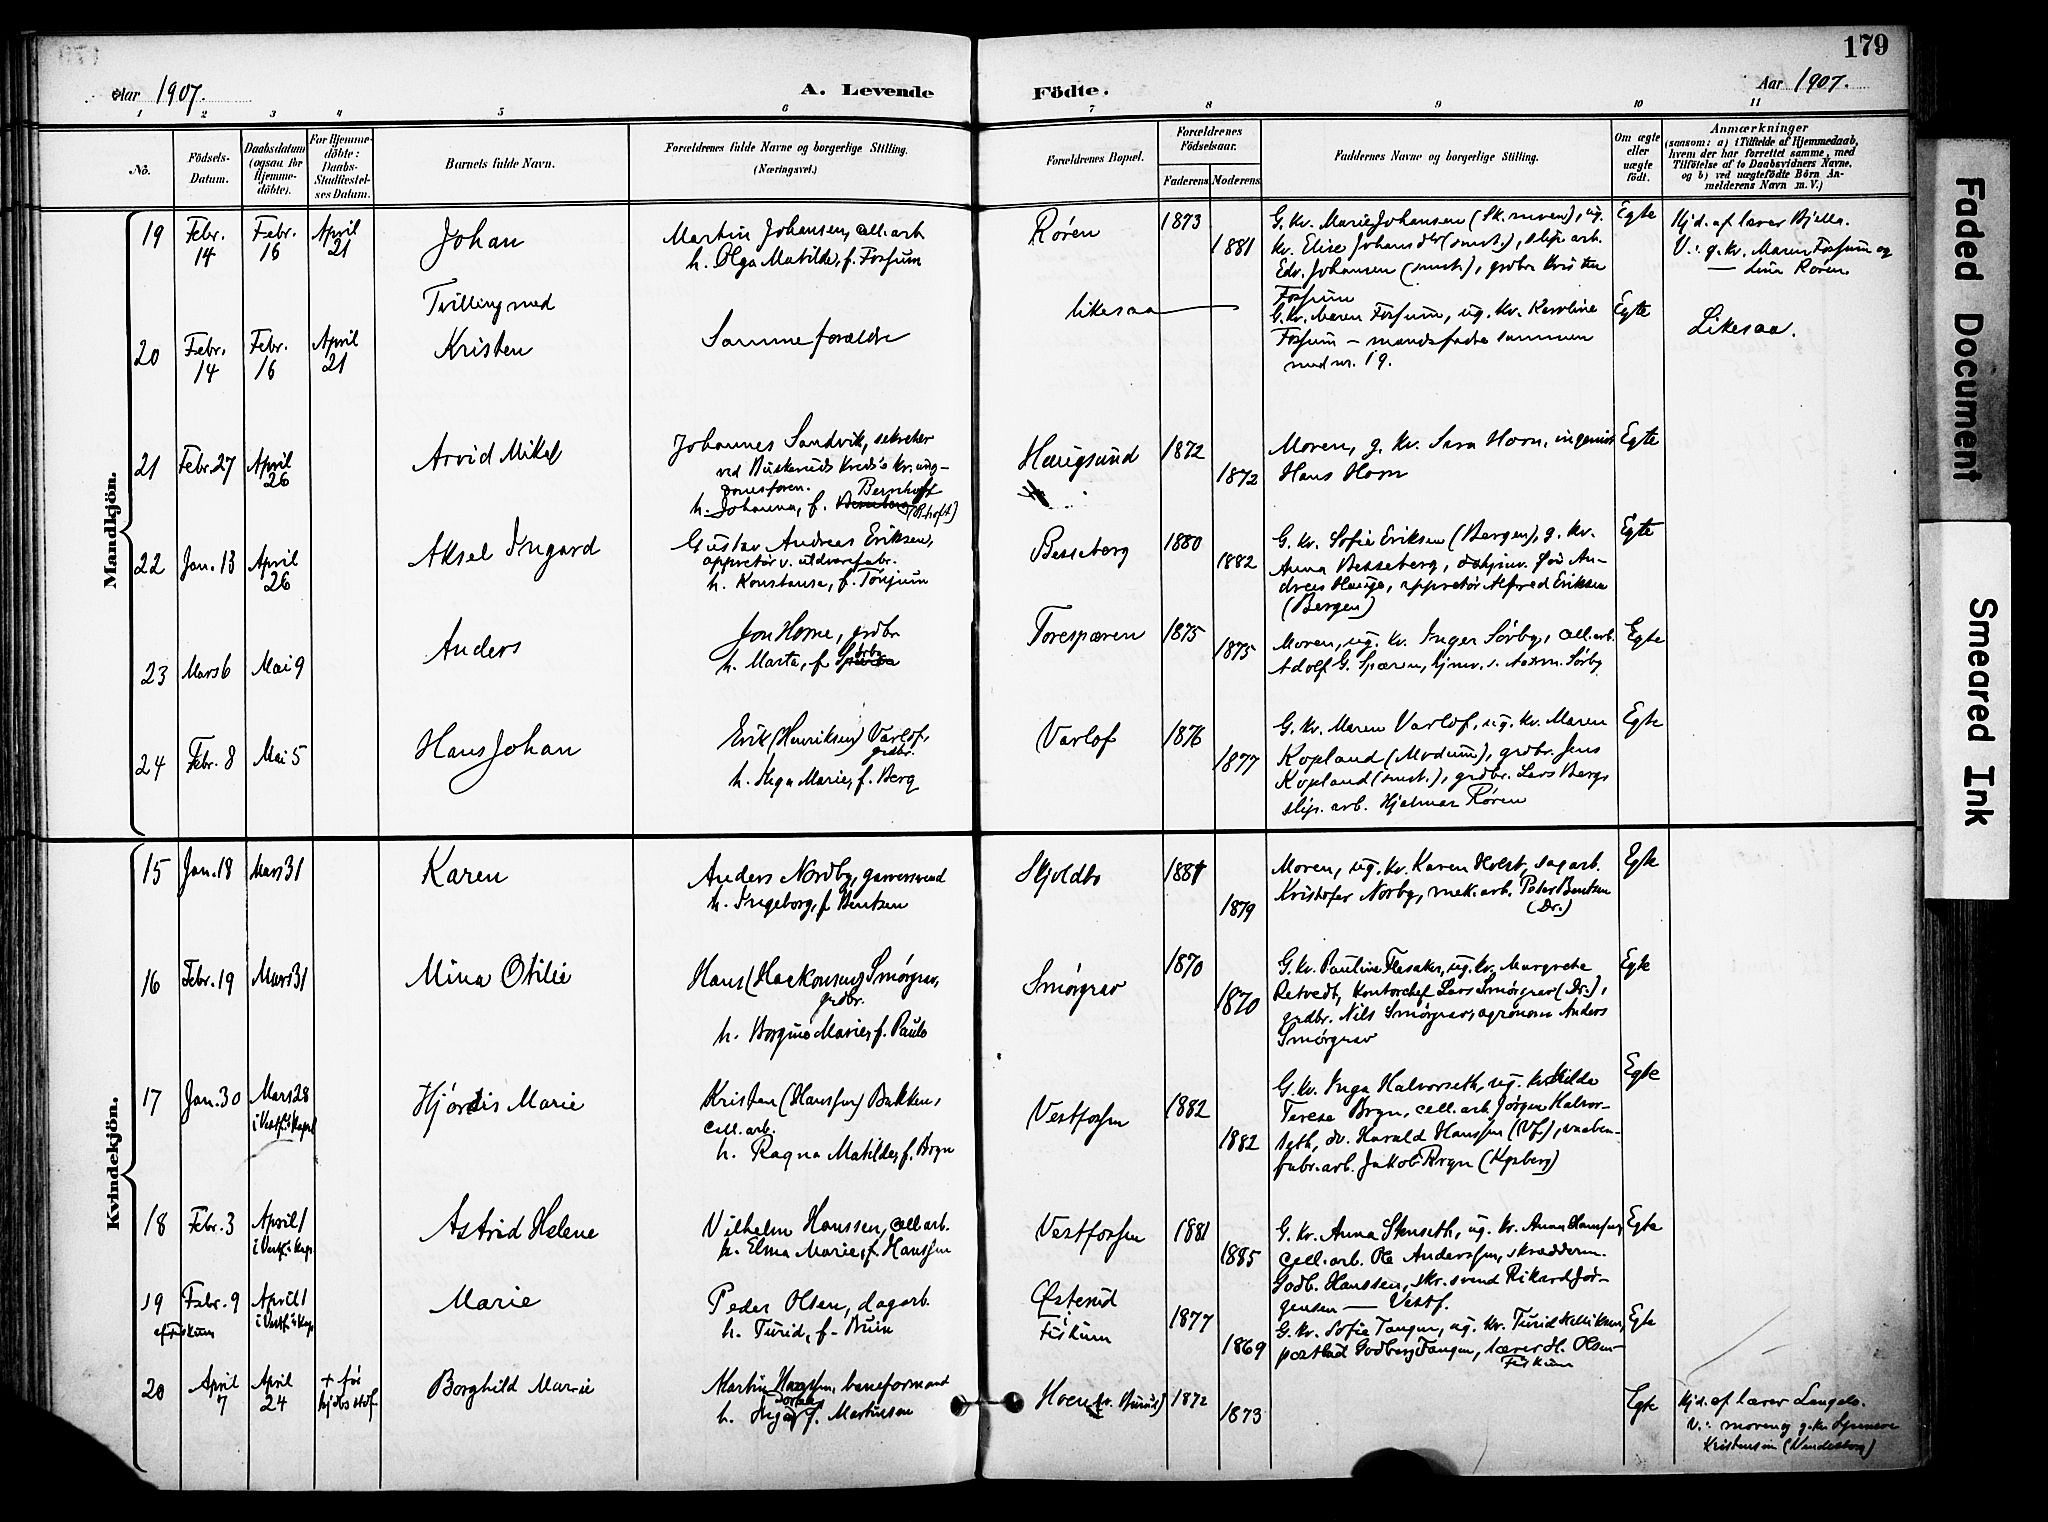 179
Aar 1907.
A. Levende
Födte.
Aar 1907.
1 2 3 4 5 6 7 8 9 10 11
No.
Födsels-
Datum.
Daabsdatum
(ogsaa for
Hjemme-
döbte).
For Hjemme-
döbte:
Daabs-
Stadfæstel-
ses Datum.
Barnets fulde Navn.
Forældrenes fulde Navne og borgerlige Stilling.
(Næringsvei.)
Forældrenes Bopæl.
Forældrenes
Födselsaar.
Faderens. Moderens.
Faddernes Navne og borgerlige Stilling.
Om ægte
eller
uægte
født.
Anmærkninger
(saasom: a) i Tilfælde af Hjemmedaab,
hvem der har forrettet samme, med
Tilföielse af to Daabsvidners Navne,
og b) ved uægtefödte Börn An-
melderens Navn m. V.)
Mandkjön.
19 Febr. 14 Febr. 16 April 21 Johan
Martin Johansen, cell. arb.
h. Olga Matilde, f. Fossum
Røren 1873 1881
G. kv. Marie Johansen (Sk. moen), ug.
kv. Elise Johansdtr (smst.), slip. arb.
Edv. Johansen (smst.), grdbr. Kristen
Fossum
Egte
Hjd. af lærer Bjella.
V.: g. kv. Maren Fossum og
— Lina Røren
20 Febr. 14 Febr. 16 April 21
Tvilling med
Kristen
Samme forældre
likesaa
G. kv. Maren Fossum, ug. kv. Karoline
Fossum — mandsfadre sammen
med nr. 19.
Egte
Likesaa.
21 Febr. 27 April 26 Arvid Mikal
Johannes Sandvik, sekretær
ved Buskeruds Kreds's kr. ung-
domsforen. Bernhoft
h. Johanna, f.
Haugsund 1872 1872
Moren, g. kv. Sara Horn, ingeniør
Hans Horn
Egte
22 Jan. 13 April 26 Aksel Ingard
Gustav Andreas Eriksen,
appretør v. uldvarefabr.
h. Konstanse, f. Tonjum
Besseberg 1880 1882
G. kv. Sofie Eriksen (Bergen), g. kv.
Anna Besseberg, An-
dreas Hauge, appretør Alfred Eriksen
(Bergen)
Egte
23 Mars 6 Mai 9 Anders
Jon Horne, grdbr.
h. Marta, f. Sørby
Torespæren 1875 1875
Moren, ug. kv. Inger Sørby, cell. arb.
Adolf G. Spæren, hjmv. s. Sørby
Egte
24 Febr. 8 Mai 5 Hans Johan
Erik (Henriksen) Varlof,
grdbr.
h. Inga Marie, f. Berg
Varlof 1876 1877
G. kv. Maren Varlof, ug. kv. Maren
Kopland (Modum), grdbr. Jens
Kopland (smst.), grdbr. Lars Berg,
slip. arb. Hjalmar Røren
Egte
Kvindekjön.
15 Jan. 18 Mars 31 Karen
Anders Nordby, garversvend
h. Ingeborg, f. Bentsen
Skjoldbo 1881 1879
Moren, ug. kv. Karen Holst, sagarb.
Kristofer Norby, mek. arb. Peder Bentsen
(Dr.)
Egte
16 Febr. 19 Mars 31 Mina Otilie
Hans (Haakonsen) Smørgrav,
grdbr.
h. Borgine Marie, f. Paulo
Smørgrav 1870 1870
G. kv. Pauline Flesaker, ug. kv. Margrete
Retvedt, kontorchef Lars Smørgrav (Dr.),
grdbr. Nils Smørgrav, agronom Anders
Smørgrav
Egte
17 Jan. 30 Mars 28 i Vestf.s kapel Hjørdis Marie
Kristen (Hanssen) Bakken,
cell. arb.
h. Ragna Matilde, f. Bryn
Vestfossen 1882 1882
G. kv. Inga Halvorseth, ug. kv. Hilda
Terese Bryn, cell. arb. Jørgen Halvor-
seth, do. Harald Hanssen (Vf.), vaaben-
fabr. arb. Jakob Bryn (Kgsberg)
Egte
18 Febr. 3 April 1 i Vestf.s kap. Astrid Helene
Vilhelm Hanssen, cell. arb.
h. Elma Marie, f. Hanssen
Vestfossen 1881 1885
G. kv. Anna Stenseth, ug. kv. Anna Hanssen,
cell. arb. Ole Anderssen, skræddern.
Godb. Hanssen, skr. svend Rikard Jør-
gensen — Vestf.
Egte
19 Febr. 9 April 1 i Vestf.s kap. Marie
af Fiskum
Peder Olsen, dagarb.
h. Turid, f. Bruin
Østerud
Fiskum 1877 1869
G. kv. Sofie Tangen, ug. kv. Turid Kittilsen,
postbud Godberg Tangen, lærer H. Olsen
Fiskum
Egte
20 April 7 April 24 + før hjdbs stdf. Borghild Marie
Martin Hanssen, baneformand
h. Inga Dortea f. Martinsen
Hoen 1872 1873
Egte
Hjd. af lærer Langelo.
V.: moren og g. kv.
Kristensen
Faded Document
Smeared Ink